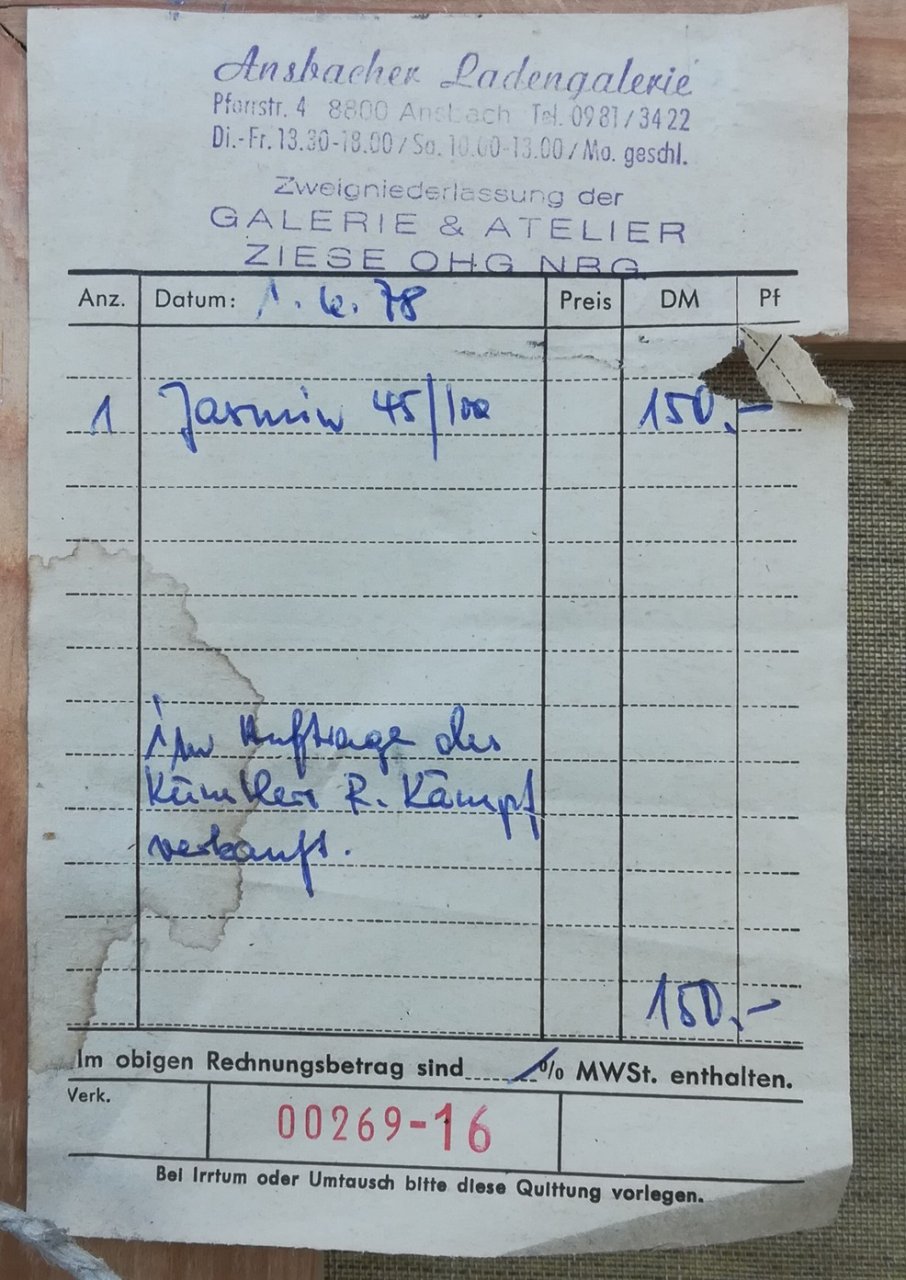 Ansbacher Ladengalerie
Pfarrstr. 4 8800 Ansbach Tel. 0981/3422
Di.-Fr. 13.30-18.00/Sa. 10.00-13.00/Mo. geschl.
Zweigniederlassung der
GALERIE & ATELIER
ZIESE OHG NBG
Anz. Datum: 1. 6. 78 Preis DM Pf
1 Jasmin 45/100 150,-
im Auftrage des
Künstlers R. Kämpf
verkauft.
150,-
Im obigen Rechnungsbetrag sind % MWSt. enthalten.
Verk.
00269-16
Bei Irrtum oder Umtausch bitte diese Quittung vorlegen.